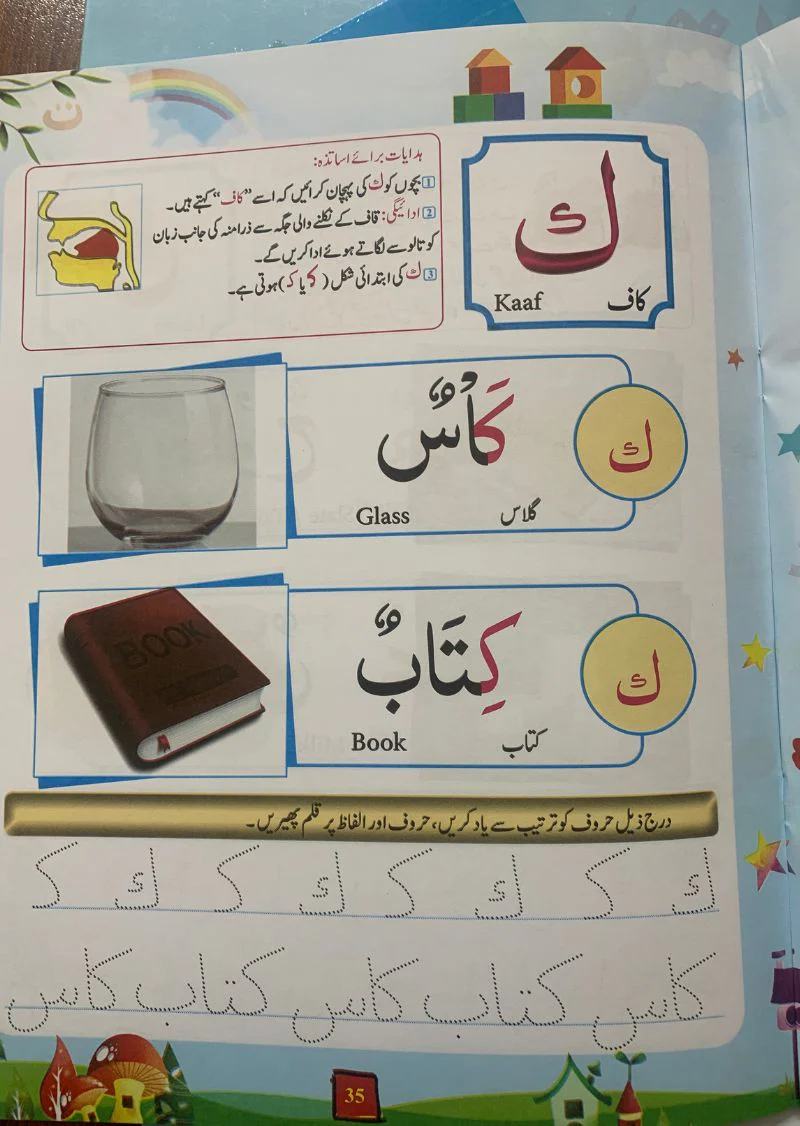 ت
ك
Kaaf کاف
ہدایات برائے اساتذہ:
1 بچوں کو ك کی پہچان کرائیں کہ اسے "کاف" کہتے ہیں۔
2 ادائیگی: قاف کے نکلنے والی جگہ سے ذرا منہ کی جانب زبان
کو تالو سے لگاتے ہوئے ادا کریں گے۔
3 ك کی ابتدائی شکل (ک یا کـ) ہوتی ہے۔
ك
كَاْسٌ
Glass گلاس
ك
كِتَابٌ
Book کتاب
BOOK
درج ذیل حروف کو ترتیب سے یاد کریں، حروف اور الفاظ پر قلم پھیریں۔
ك کـ ك کـ ك کـ ك کـ
کاس کتاب کاس کتاب کاس
35